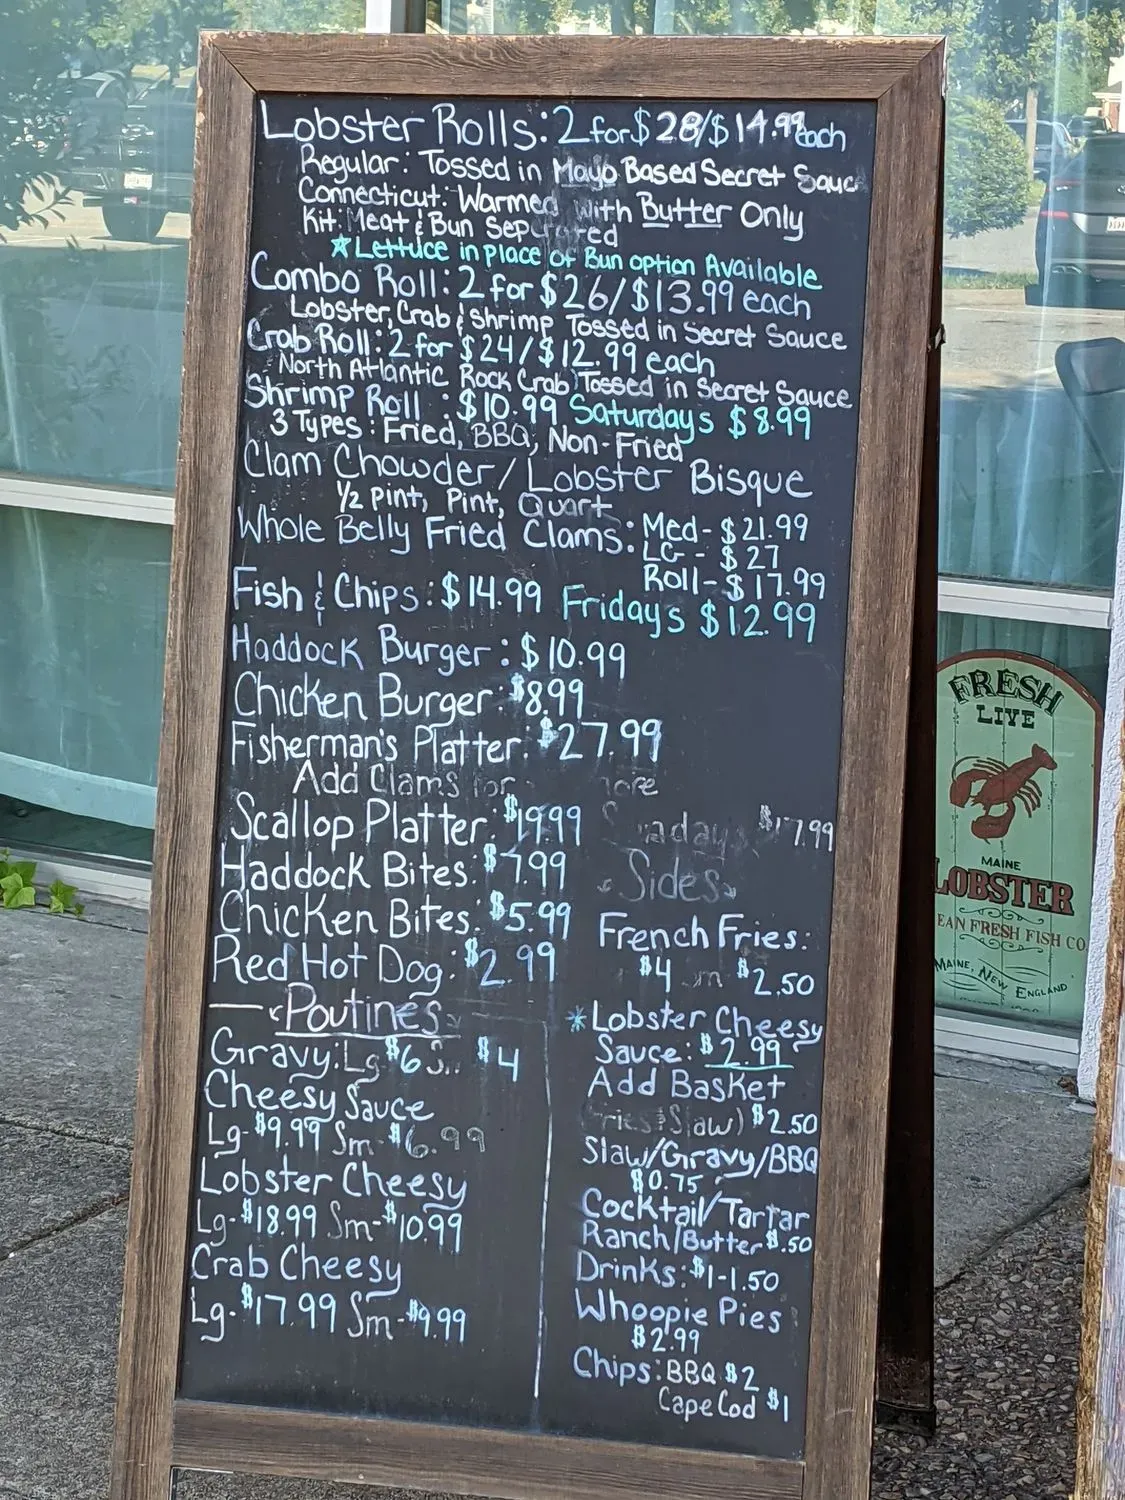 Lobster Rolls: 2 for $28/$14.99 each
Regular: Tossed in Mayo Based Secret Sauc
Connecticut: Warmed with Butter Only
Kit: Meat & Bun Seperated
*Lettuce in place of Bun option Available
Combo Roll: 2 for $26/$13.99 each
Lobster, Crab & Shrimp Tossed in Secret Sauce
Crab Roll: 2 for $24/$12.99 each
North Atlantic Rock Crab Tossed in Secret Sauce
Shrimp Roll : $10.99 Saturdays $8.99
3 Types: Fried, BBQ, Non-Fried
Clam Chowder/Lobster Bisque
1/2 pint, Pint, Quart
Whole Belly Fried Clams: Med- $21.99
LG- $27
Roll- $17.99
Fish & Chips: $14.99 Fridays $12.99
Haddock Burger: $10.99
Chicken Burger: $8.99
Fisherman's Platter: $27.99
Add Clams for
Scallop Platter: $19.99 $17.99
Haddock Bites: $7.99
Chicken Bites: $5.99
Red Hot Dog: $2.99
Poutines
Gravy: Lg $6 $4
Cheesy Sauce
Lg- $9.99 Sm- $6.99
Lobster Cheesy
Lg- $18.99 Sm- $10.99
Crab Cheesy
Lg- $17.99 Sm- $9.99
Sides
French Fries:
$4 $2.50
*Lobster Cheesy
Sauce: $2.99
Add Basket
Slaw) $2.50
Slaw/Gravy/BBQ
$0.75
Cocktail/Tartar
Ranch/Butter $.50
Drinks: $1-1.50
Whoopie Pies
$2.99
Chips: BBQ $2
Cape Cod $1
FRESH
LIVE
MAINE
LOBSTER
EAN FRESH FISH CO
MAINE, NEW ENGLAND